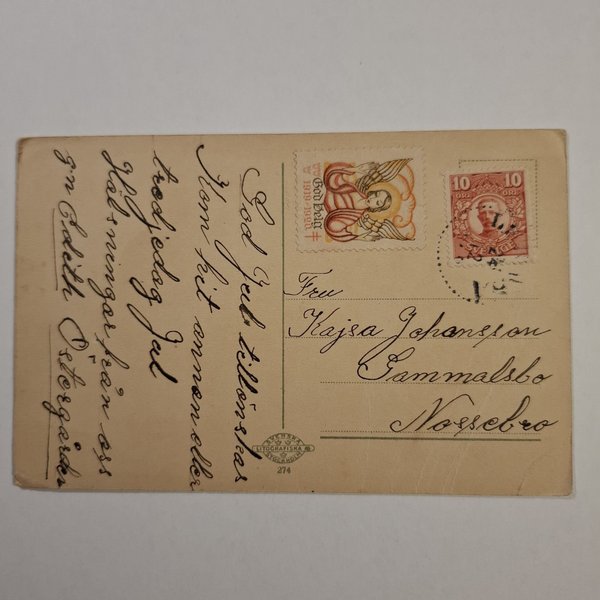 God Jul tillönskas
Kom hit annan eller
tredjedag Jul
Hälsningar från oss
gn Edeth Östergården
God Helg
1919-1920
10 10
ÖRE ÖRE
Fru
Kajsa Johansson
Gammalsbo
Nossebro
SVENSKA
LITOGRAFISKA AB
STOCKHOLM
274